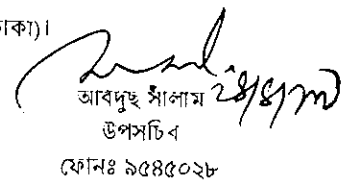 ঢাকা)।
আবদুছ সালাম
উপসচিব
ফোনঃ ৯৫৪৫০২৮